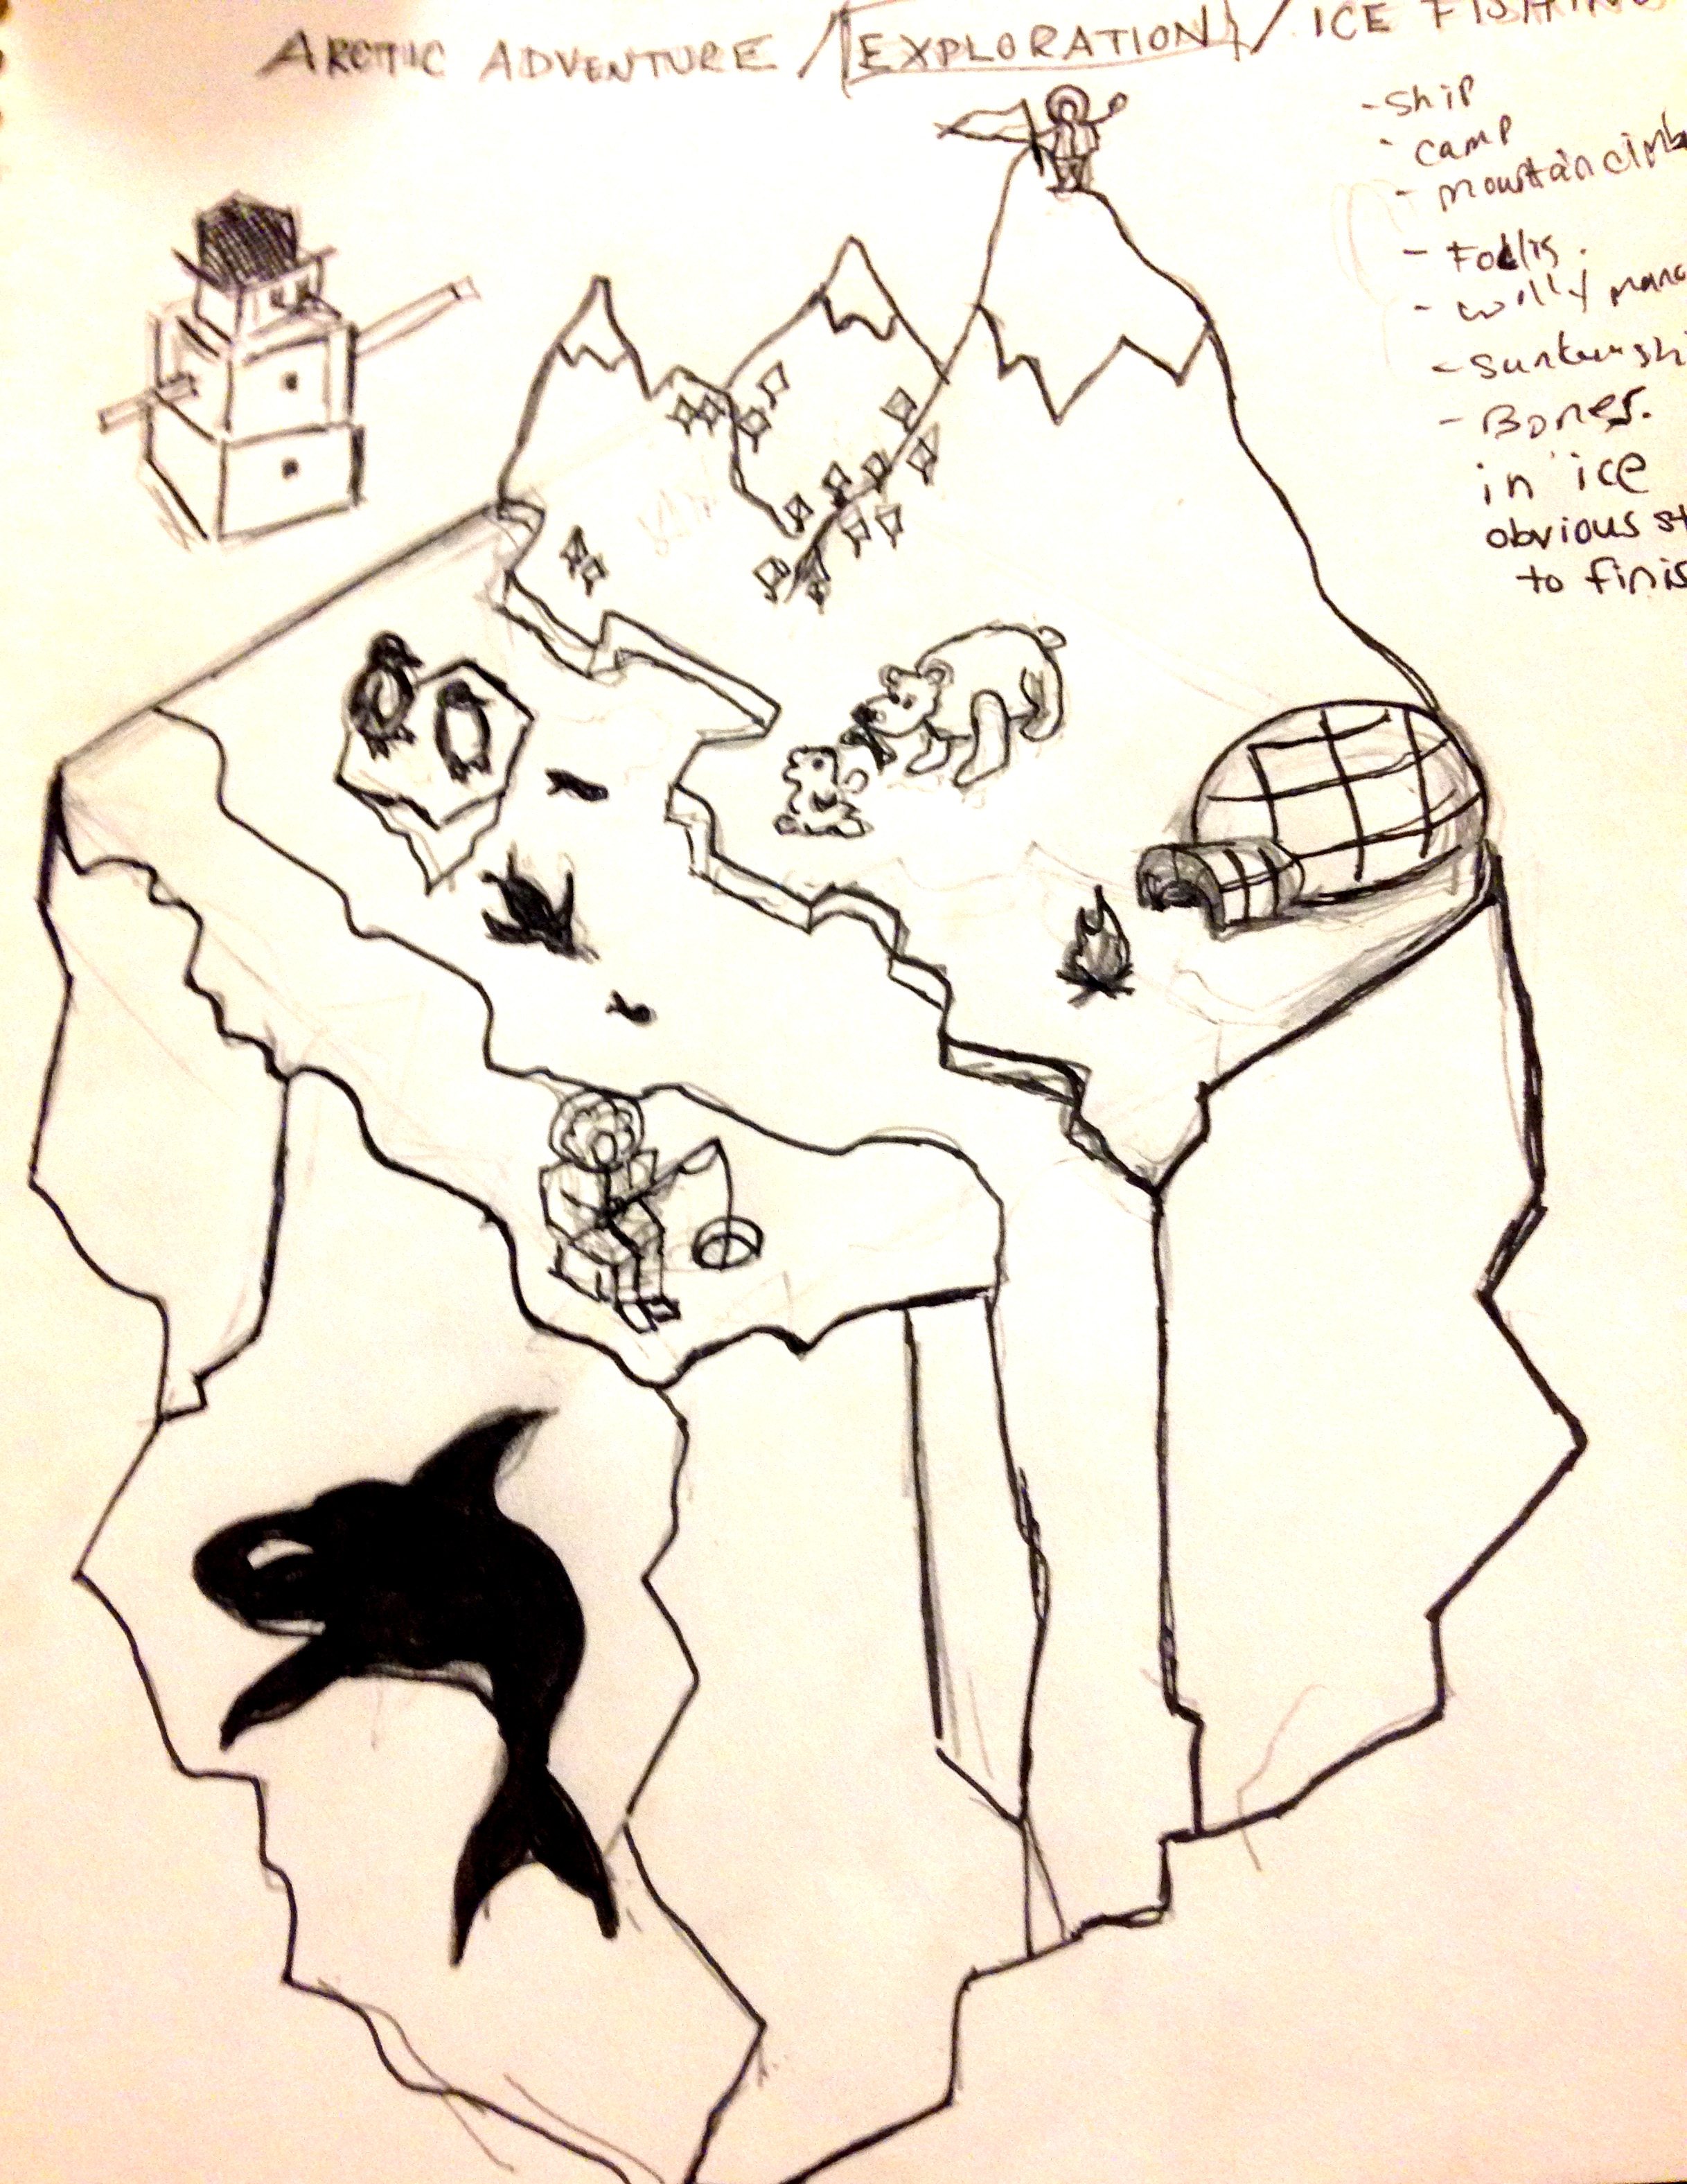 ARCTIC ADVENTURE / EXPLORATION / ICE FISHING
- Ship
- camp
- mountain climb
-
- willy
- sunken sh
- Bones.
in ice
obvious st
to finis